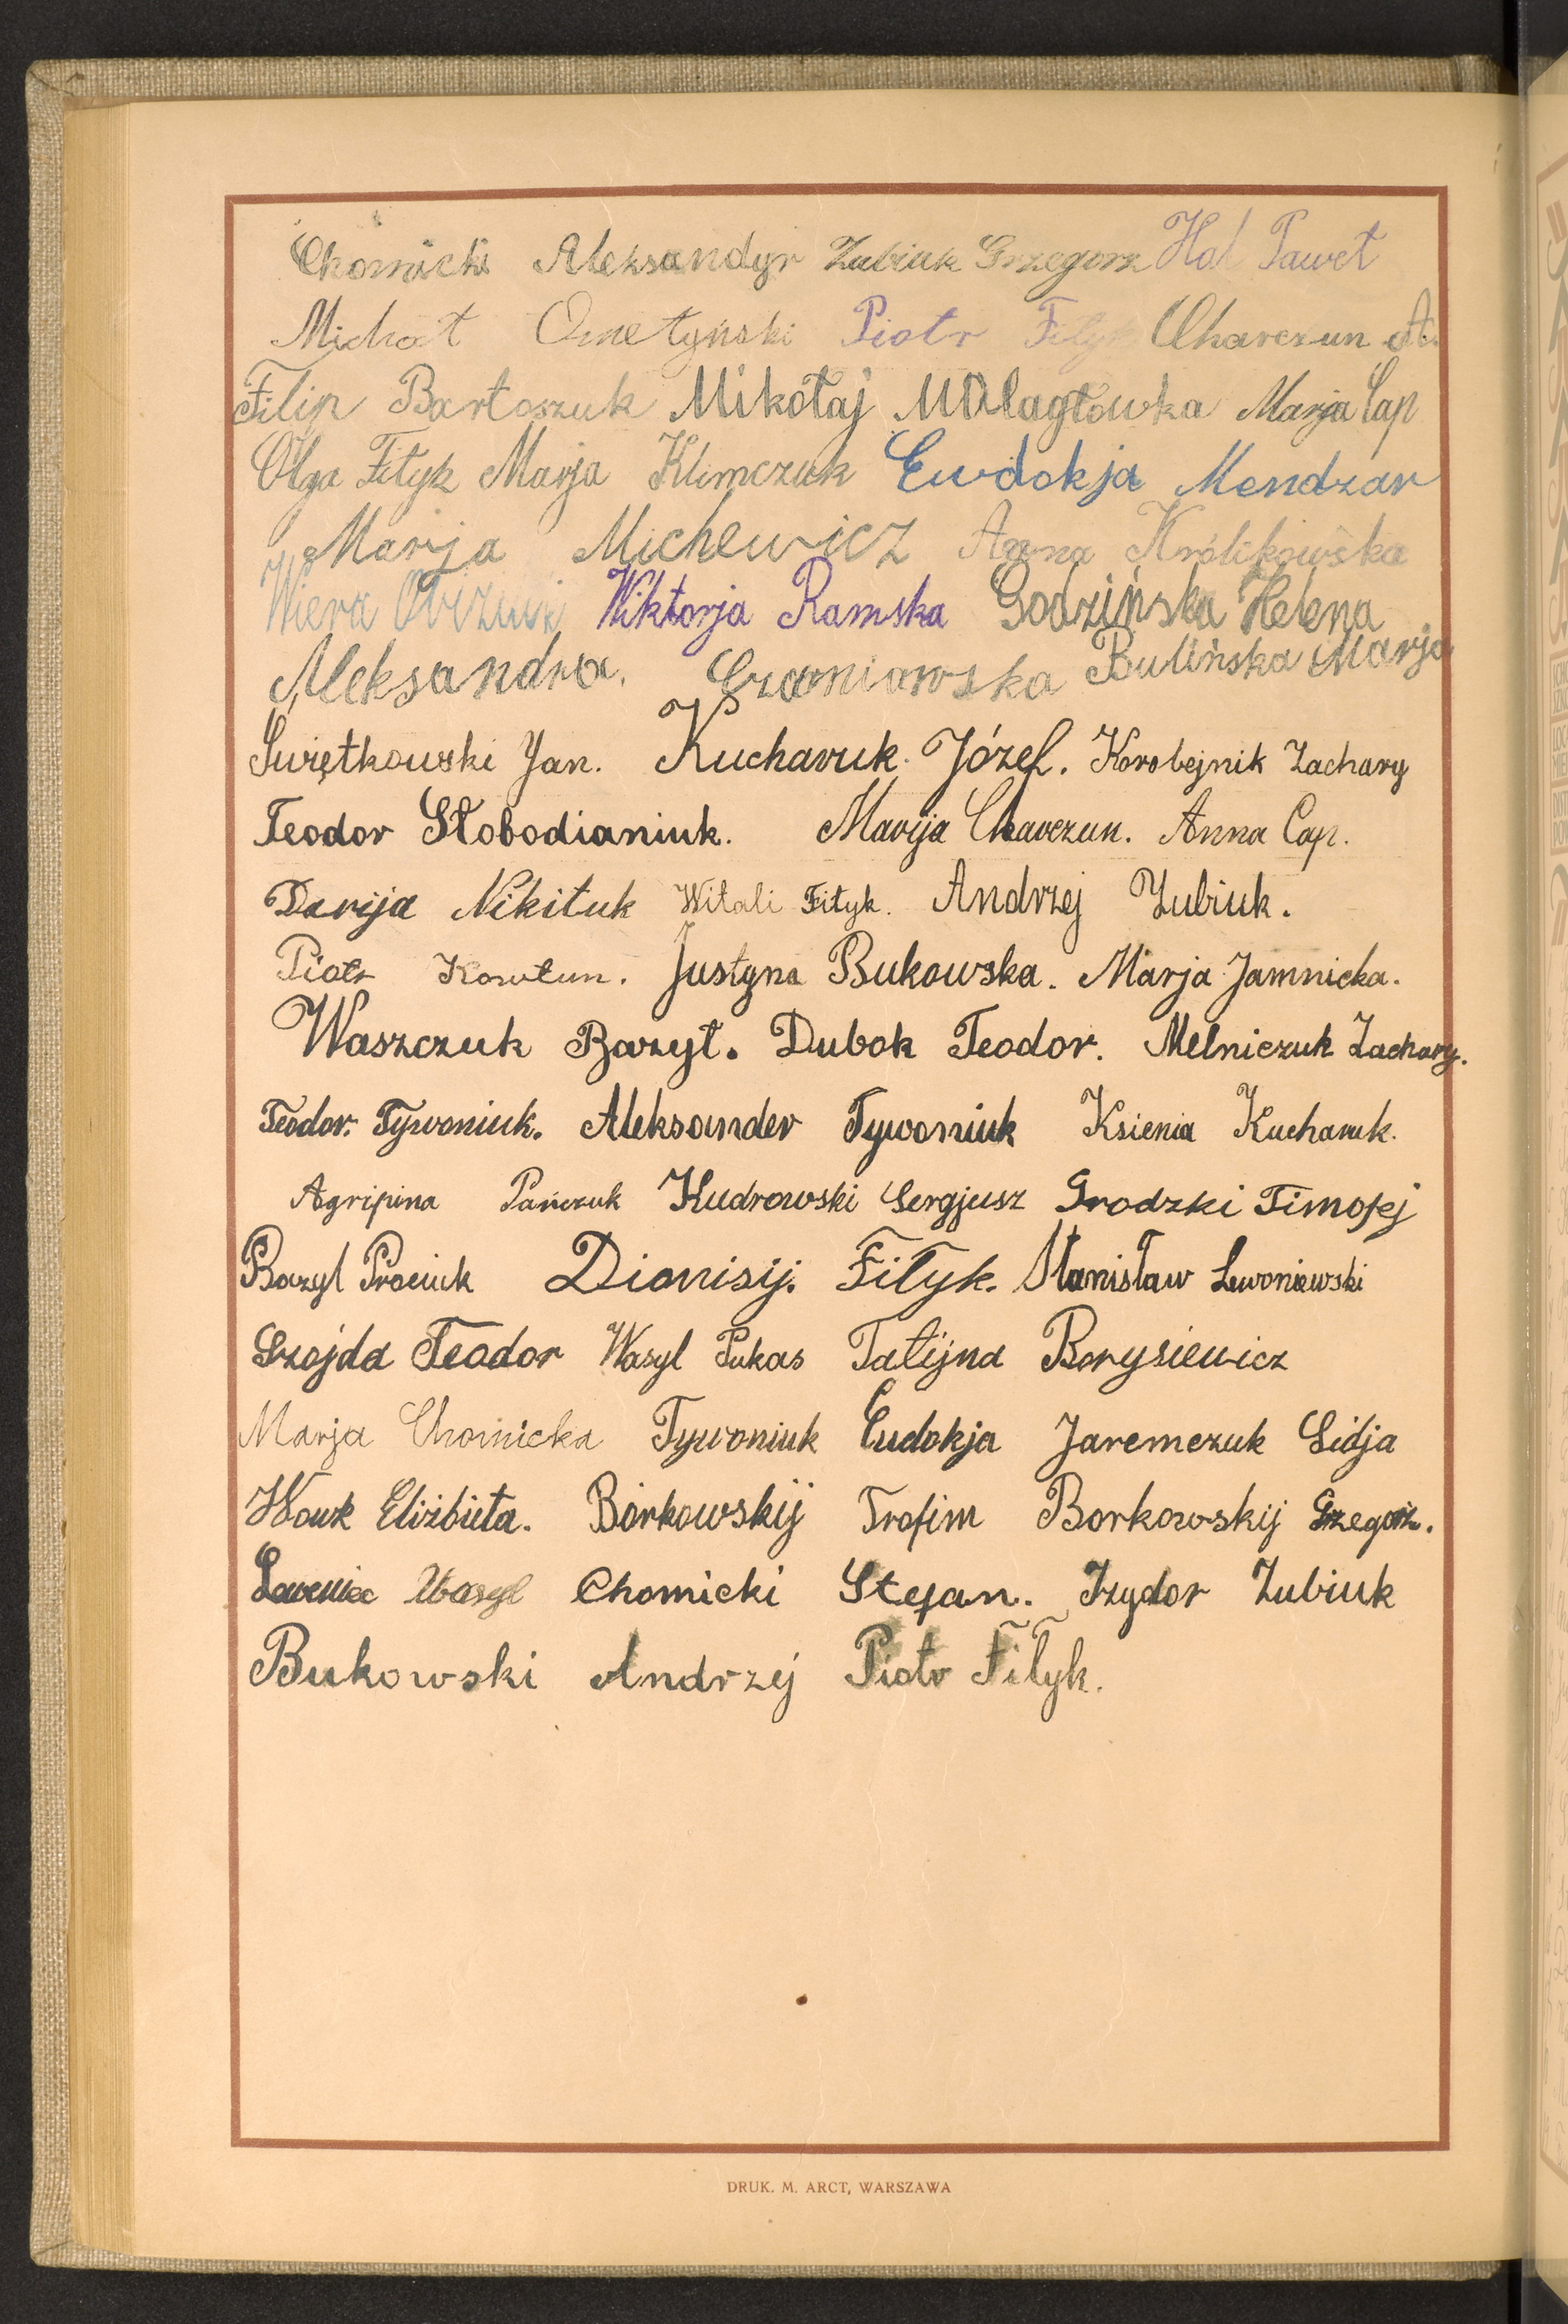 Chomicki Aleksandyr Zubiuk Grzegorz Hal Paweł
Michał Ometyński Piotr Fityk Charczun A.
Filip Bartoszuk Mikołaj Małagłowka Marja Cap
Olga Fityk Marja Klimczuk Ewdokja Mendzar
Marja Michewicz Anna Królikowska
Wiera Wiktorja Ramska Godzińska Helena
Aleksandra. Czaniawska Bulińska Marja
Świętkowski Jan. Kucharuk. Józef. Korobejnik Zachary
Teodor Słobodianiuk. Marija Charczun. Anna Cap.
Darija Nikituk Witali Fityk. Andrzej Zubiuk.
Piotr Kowtun. Justyna Bukowska. Marja Jamnicka.
Waszczuk Bazyt. Dubok Teodor. Melniczuk Zachary.
Teodor. Tywoniuk. Aleksander Tywoniuk Ksienia Kucharuk.
Agripina Pańczuk Kudrowski Sergjusz Grodzki Timofej
Bazyl Prociuk Dionisij. Fityk. Stanisław Lewoniewski
Szojda Teodor Wasyl Pukas Tatijna Borysiewicz
Marja Chomicka Tywoniuk Eudokja Jaremczuk Lidja
Wowk Eliżbieta. Borkowskij Trofim Borkowskij Grzegorz.
Wasyl Chomicki Stefan. Izydor Zubiuk
Bukowski Andrzej Piotr Fityk.
DRUK. M. ARCT, WARSZAWA